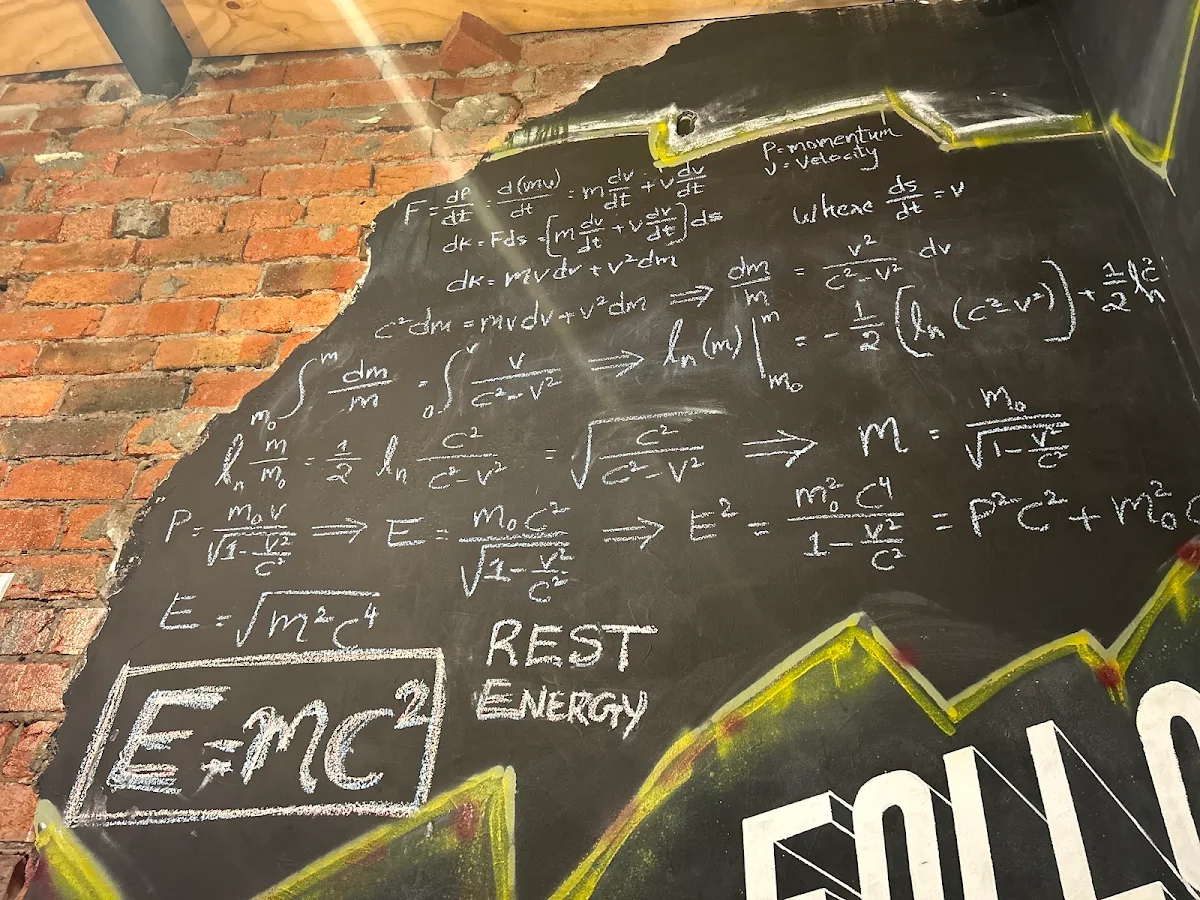 P=momentum
v=velocity
F = dP/dt = d(mv)/dt = m dv/dt + v dv/dt
where ds/dt = v
dk = Fds = [m dv/dt + v dv/dt] ds
dk = mvdv + v²dm
c²dm = mvdv + v²dm ⇒ dm/m = v²/(c²-v²) dv
∫_{m₀}^{m} dm/m = ∫_{0}^{v} v/(c²-v²) ⇒ ln(m)|_{m₀}^{m} = -1/2 (ln(c²-v²)) + 1/2 ln c²
ln m/m₀ = 1/2 ln c²/(c²-v²) = √(c²/(c²-v²)) ⇒ m = m₀/√(1-v²/c²)
P = m₀v/√(1-v²/c²) ⇒ E = m₀c²/√(1-v²/c²) ⇒ E² = m₀²c⁴/(1-v²/c²) = P²c² + m₀²c
E = √(m²c⁴)
REST
ENERGY
E=mc²
FOLLO